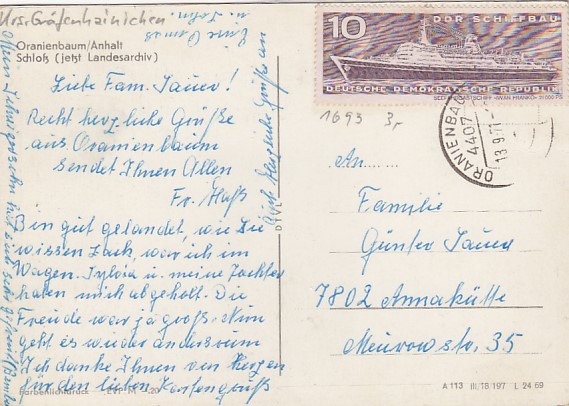 Krs. Gräfenhainichen
Oranienbaum/Anhalt
Schloß (jetzt Landesarchiv)
Liebe Fam. Sauer!
Recht herzliche Grüße
aus Oranienbaum
sendet Ihnen Allen
Fr. Haß
Bin gut gelandet, wie Sie
wissen, war ich im
Wagen. Sylvia u. meine Tochter
haben mich abgeholt. Die
Freude war ja groß. Nun
geht es wieder andersrum
Ich danke Ihnen von Herzen
für den lieben Kartengruß
Auch herzliche Grüße an
10
DDR SCHIFFBAU
DEUTSCHE DEMOKRATISCHE REPUBLIK
1693 3,-
ORANIENBAUM
4407
13.9.71
An......
Familie
Günter Sauer
7802 Annahütte
35
A 113 III/18/197 L 24 69